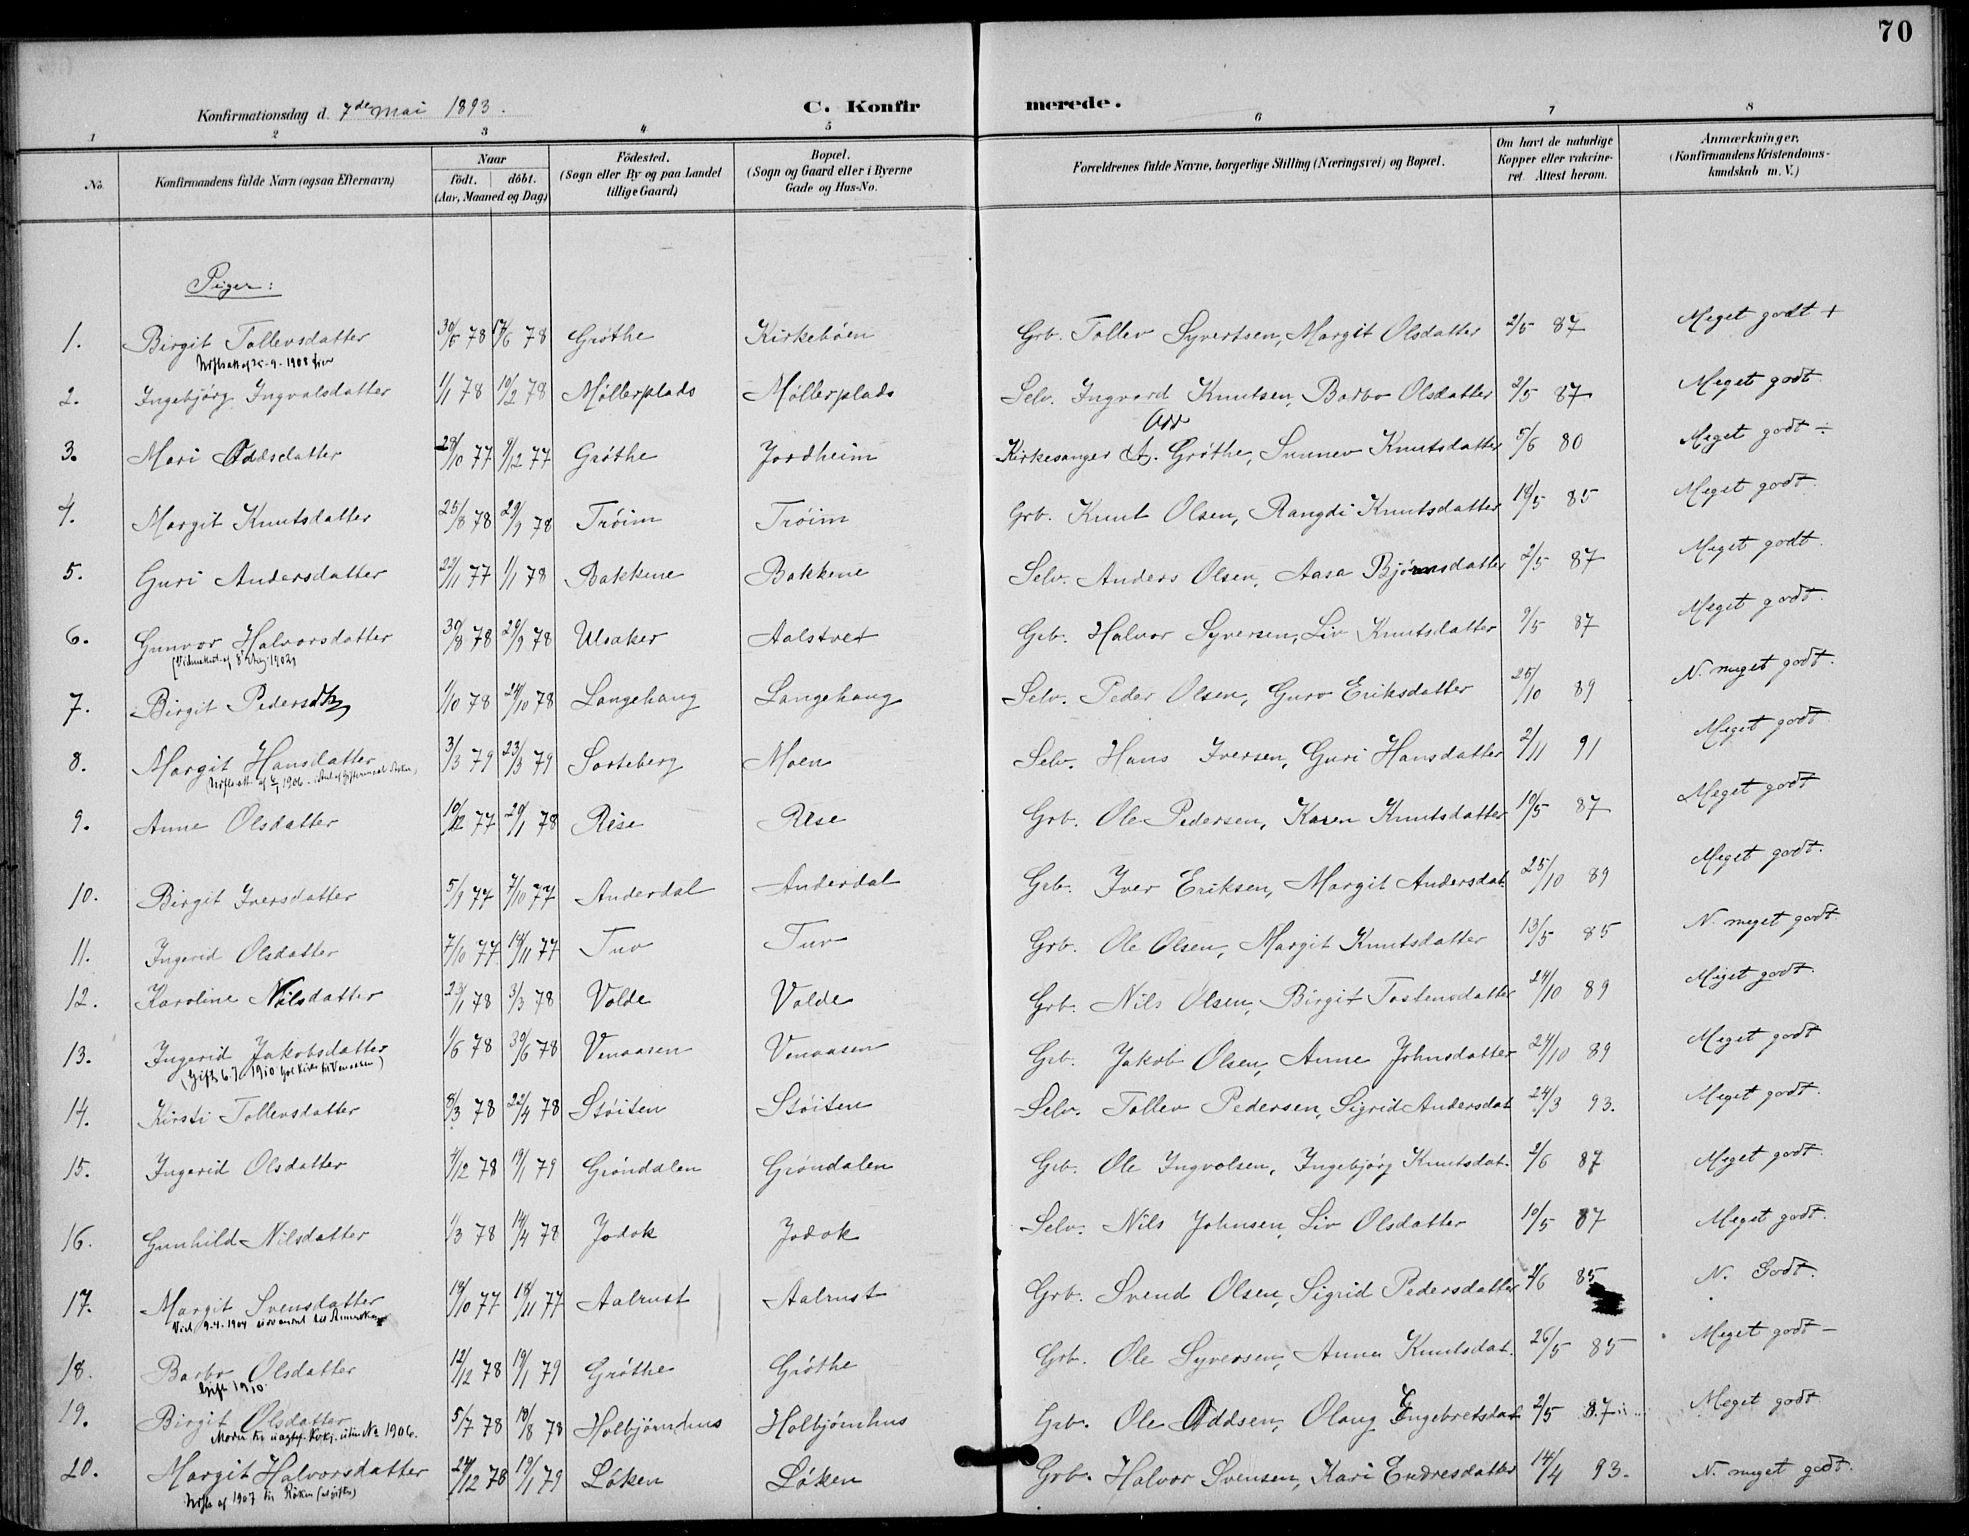 70
Konfirmationsdag d. 7de Mai 1893. C. Konfirmerede.
1 2 3 4 5 6 7 8
No. Konfirmandens fulde Navn (ogsaa Efternavn) Naar født. døbt. (Aar, Maaned og Dag) Födested. (Sogn eller By og paa Landet tillige Gaard) Bopæl. (Sogn og Gaard eller i Byerne Gade og Hus-No. Forældrenes fulde Navne, borgerlige Stilling (Næringsvei) og Bopæl. Om havt de naturlige Kopper eller vakcineret. Attest herom. Anmærkninger, (Konfirmandens Kristendomskundskab m. V.)
Piger:
1. Birgit Tollevsdatter 30/5 78 /6 78 Grøthe Kirkebøen Grb. Tollev Syvertsen, Margit Olsdatter 2/5 87 Meget godt +
25-9-1908
2. Ingebjørg Ingvalsdatter 1/1 78 10/2 78 Møllerplads Møllerplads Selv. Ingvard Knutsen, Barbo Olsdatter 2/5 87 Meget godt.
3. Mari Oddsdatter 28/10 77 9/12 77 Grøthe Jordheim Kirkesanger Grøthe, Sunnev Knutsdatter 5/6 80 Meget godt ÷
4. Margit Knutsdatter 25/8 78 29/9 78 Trøim Trøim Grb. Knut Olsen, Rangdi Knutsdatter 18/5 85 Meget godt.
5. Guri Andersdatter 22/11 77 1/1 78 Bakkene Bakkene Selv. Anders Olsen, Aasa Bjørnsdatter 2/5 87 Meget godt.
6. Gunvor Halvorsdatter 30/8 78 29/9 78 Ulsaker Aalstvet Grb. Halvor Syversen, Liv Knutsdatter 9/5 87 Meget godt.
7. Birgit Pedersdtr 1/10 78 24/10 78 Langehaug Langehaug Selv. Peder Olsen, Guro Eriksdatter 25/10 89 N. meget godt.
8. Margit Hansdatter 3/3 79 23/3 79 Sorteberg Moen Selv. Hans Iversen, Guri Hansdatter 2/11 91 Meget godt
1906.
9. Anne Olsdatter 10/12 77 20/1 78 Rise Rise Grb. Ole Pedersen, Karen Knutsdatter 10/5 87 Meget godt
10. Birgit Iversdatter 5/9 77 7/10 77 Anderdal Anderdal Grb. Iver Eriksen, Margit Andersdat. 25/10 89 Meget godt.
11. Ingerid Olsdatter 7/10 77 18/11 77 Tuv Tuv Grb. Ole Olsen, Margit Knutsdatter 13/5 85 N. meget godt.
12. Karoline Nilsdatter 23/1 78 3/3 78 Volde Volde Grb. Nils Olsen, Birgit Tostensdatter 24/10 89 Meget godt.
13. Ingerid Jakobsdatter 1/6 78 30/6 78 Venaasen Venaasen Grb. Jakob Olsen, Anne Johnsdatter 24/10 89 Meget godt
14. Kirsti Tollevsdatter 8/3 78 22/4 78 Støiten Støiten Selv. Tollev Pedersen, Sigrid Andersdat 24/3 93. Meget godt.
15. Ingerid Olsdatter 4/12 78 19/1 79 Grøndalen Grøndalen Grb. Ole Ingvolsen, Ingebjørg Knutsdat. 2/6 87 Meget godt.
16. Gunhild Nilsdatter 1/3 78 14/4 78 Jodok Jodok Selv. Nils Johnsen, Liv Olsdatter 10/5 87 Meget godt.
17. Margit Svensdatter 19/10 77 18/11 77 Aalrust Aalrust Grb. Svend Olsen, Sigrid Pedersdatter /6 85 N. Godt.
9-4-1904
18. Barbo Olsdatter 12/12 78 19/1 79 Grøthe Grøthe Grb. Ole Syversen, Anna Knutsdat. 26/5 85 Meget godt -
Gift 1910.
19. Birgit Olsdatter 5/7 78 18/8 78 Holbjørnhus Holbjørnhus Grb. Ole Oddsen, Olaug Engebretsdat 2/5 87 Meget godt
1906.
20. Margit Halvorsdatter 24/12 78 19/1 79 Løken Løken Grb. Halvor Svensen, Kari Endresdatter 14/4 93. N. meget godt.
1907